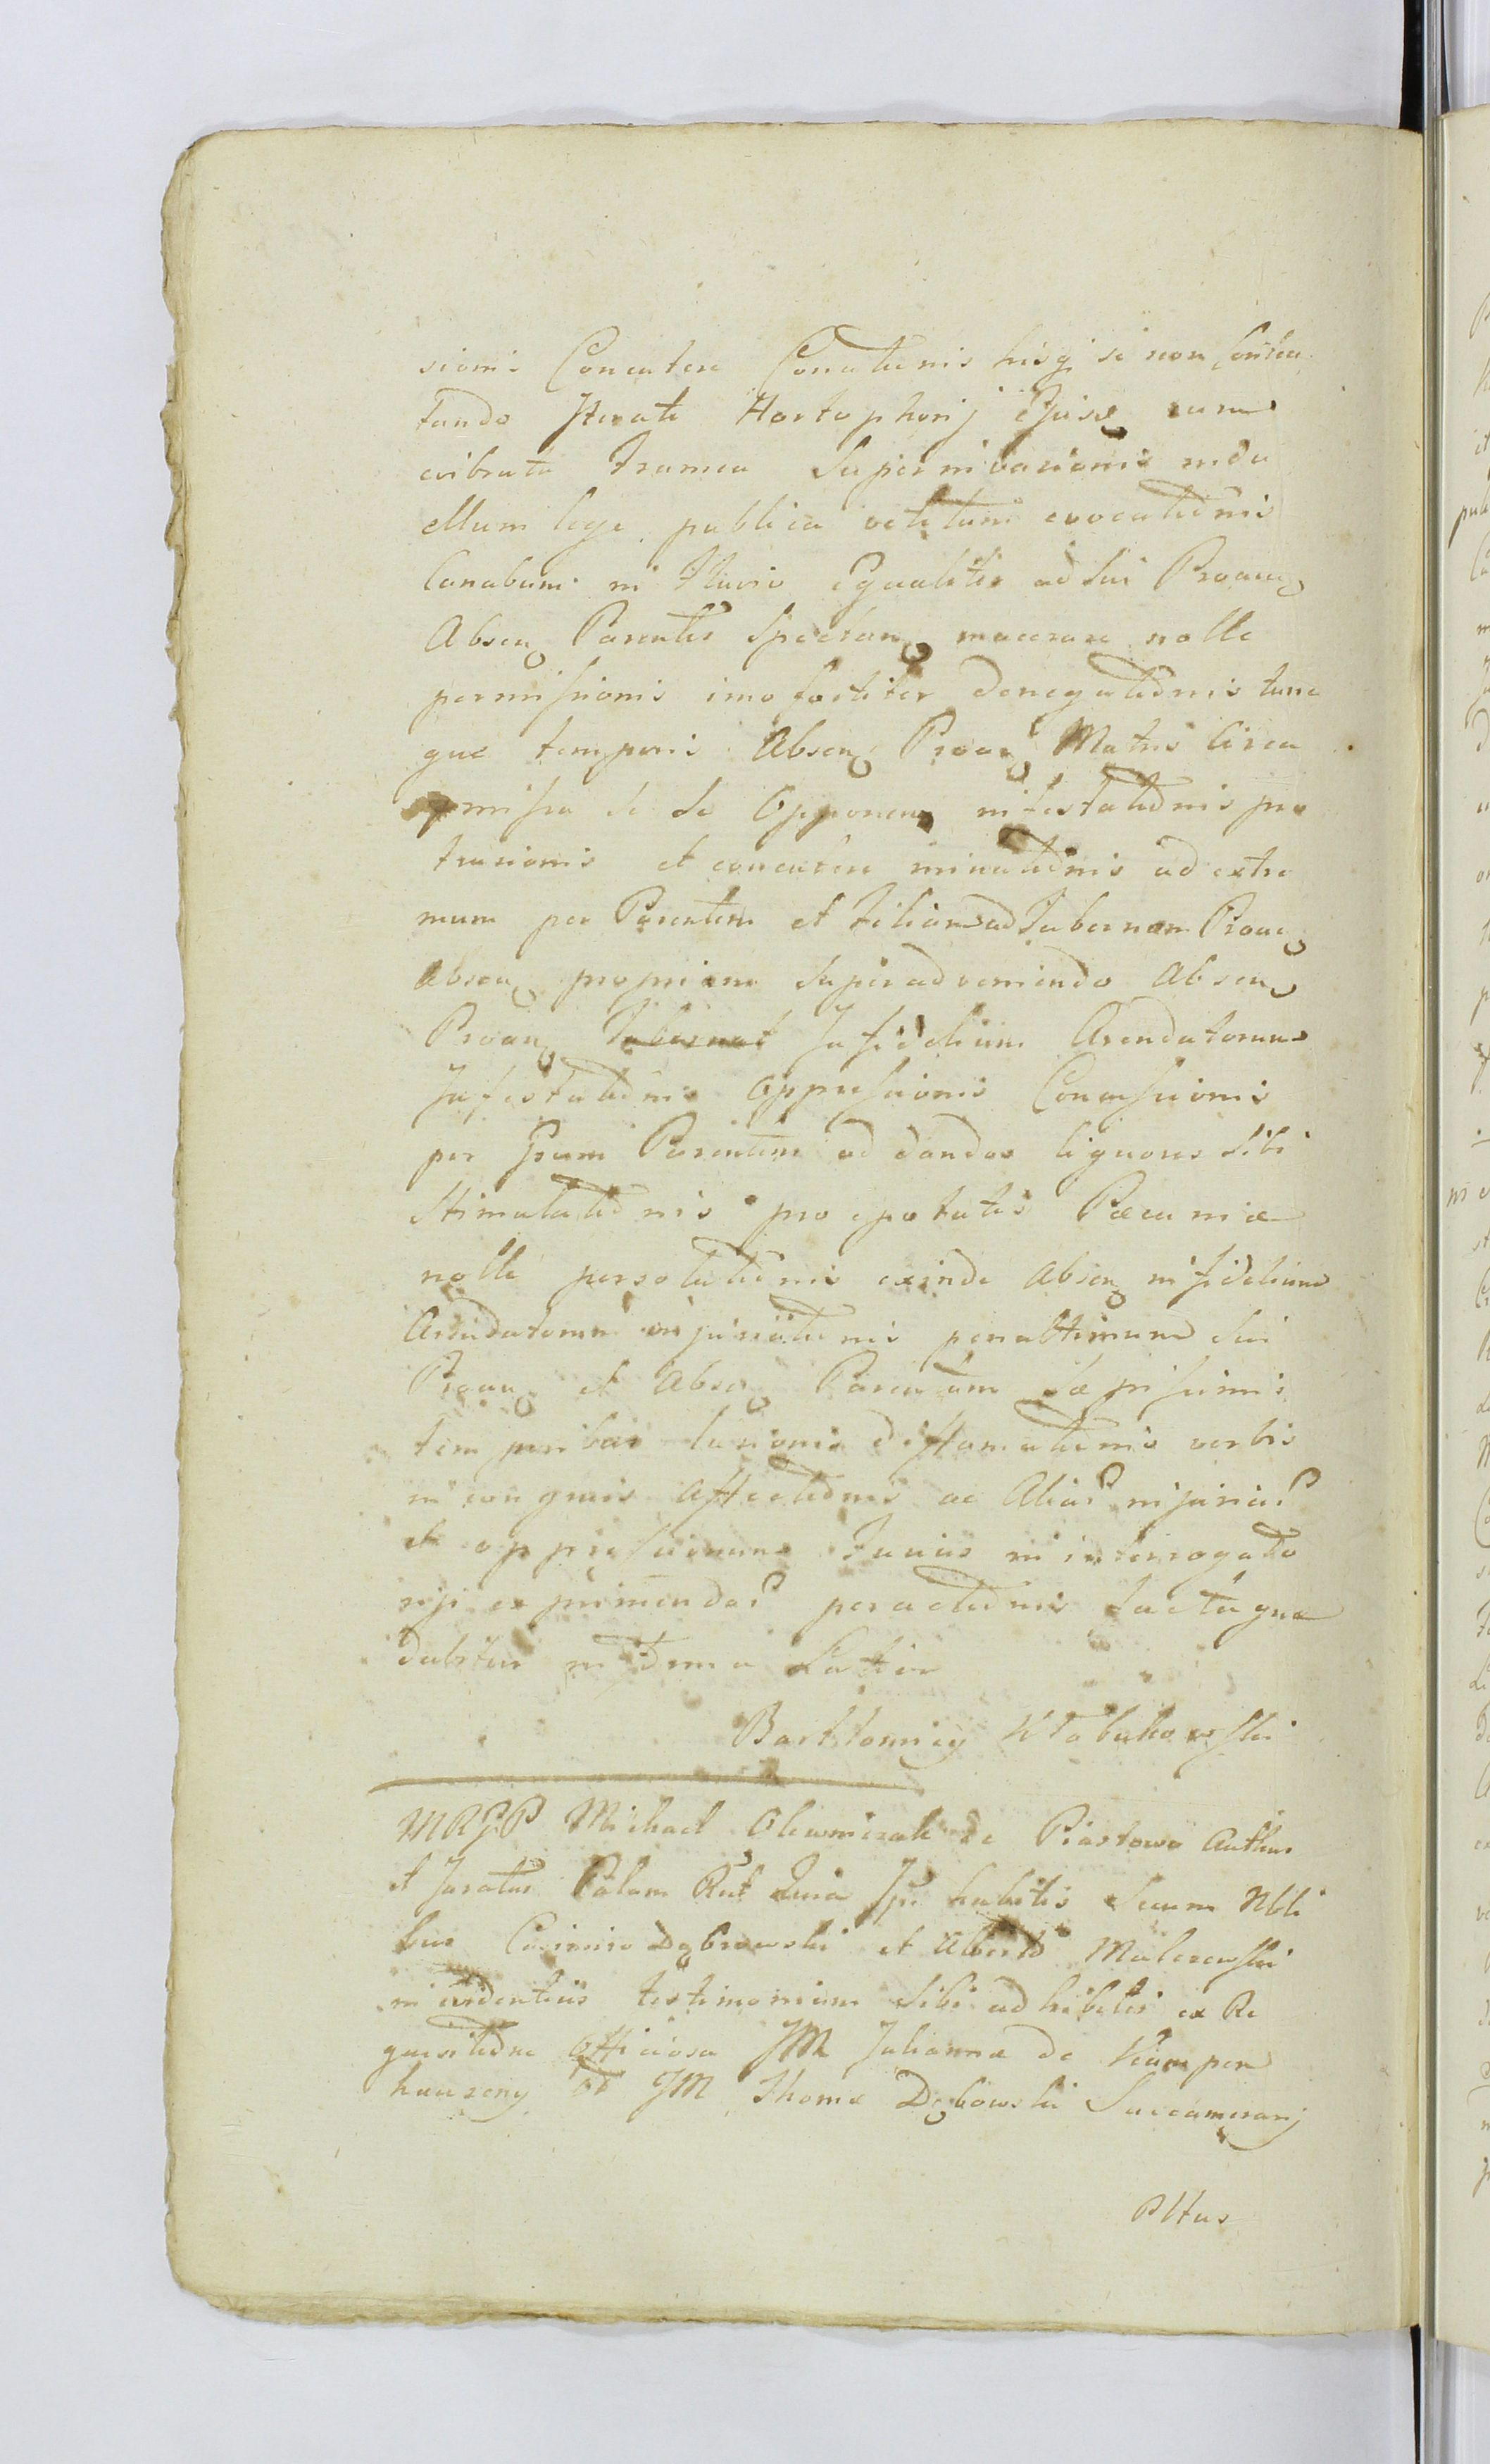 sionis Concutere Conat̄unis hisq̨ se non Conten
tando Iterate Hortophorij Ejusq̨ cum
evibrata Framea Superinvasionis in du
ellum lege publica vetitum evocatīonis
Canabum in Fluvio Equaliter ad sui Proan̨
Absen̨ Parentis Spectan̨ macerare nolle
permissionis imo fortiter denegatīonis tunc
que temporis Absen̨ Proan̨ Matris Circa
pmissa se se Opponen̨ infestatīonis pro
trusionis et concutere minatīonis ad extre
mum per Parentem et Filium ad Tabernam Proan̨
absen̨ propriam Superadveniendo Absen̨
Proan̨ Infidelium Arendatorum
Infestatīonis Oppressionis Concussionis
per Ipsum Parentem ad dandos liquores sibi
Stimulatīonis pro epotatis Pæcuniæ
nolle persolutīonis exinde Absen̨ infidelium
Arendatorum injuriātionis penultimum Sui
Proan̨ et Absen̨ Parentum sæpissimis
temporibus Læsionis diffamatīonis verbis
incongruis Affectīonis ac Alias injurias
et oppressionum Junius in interrogato
rijs exprimendas peractīonis factaque
dabitur in Tĩno Latior
Bartłomiey
MRPP Michael de Piastowo Authus
et Juratus Palam Rec̄t Quia Ipse habitis Secum Nbli
bus Casimiro Dąbrowski et Alberto Malezewski
in evidentius testimonium Sibi adhibitis ex Re
quisitīone Officiosa JM Julianna de Kiam pen
hauzeny et JM Thomæ Dębowski Succamerarij
Pltus